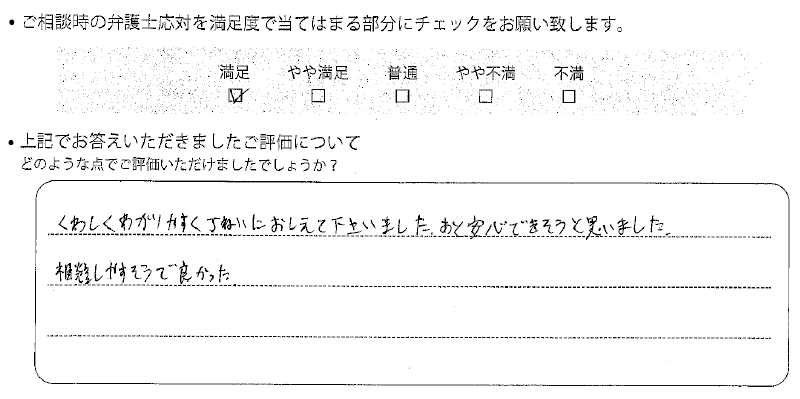 • ご相談時の弁護士応対を満足度で当てはまる部分にチェックをお願い致します。
満足 やや満足 普通 やや不満 不満
☑ □ □ □ □
• 上記でお答えいただきましたご評価について
どのような点でご評価いただけましたでしょうか?
くわしくわかりやすく丁ねいにおしえて下さいました。あと安心できそうと思いました。
相談しやすそうで良かった